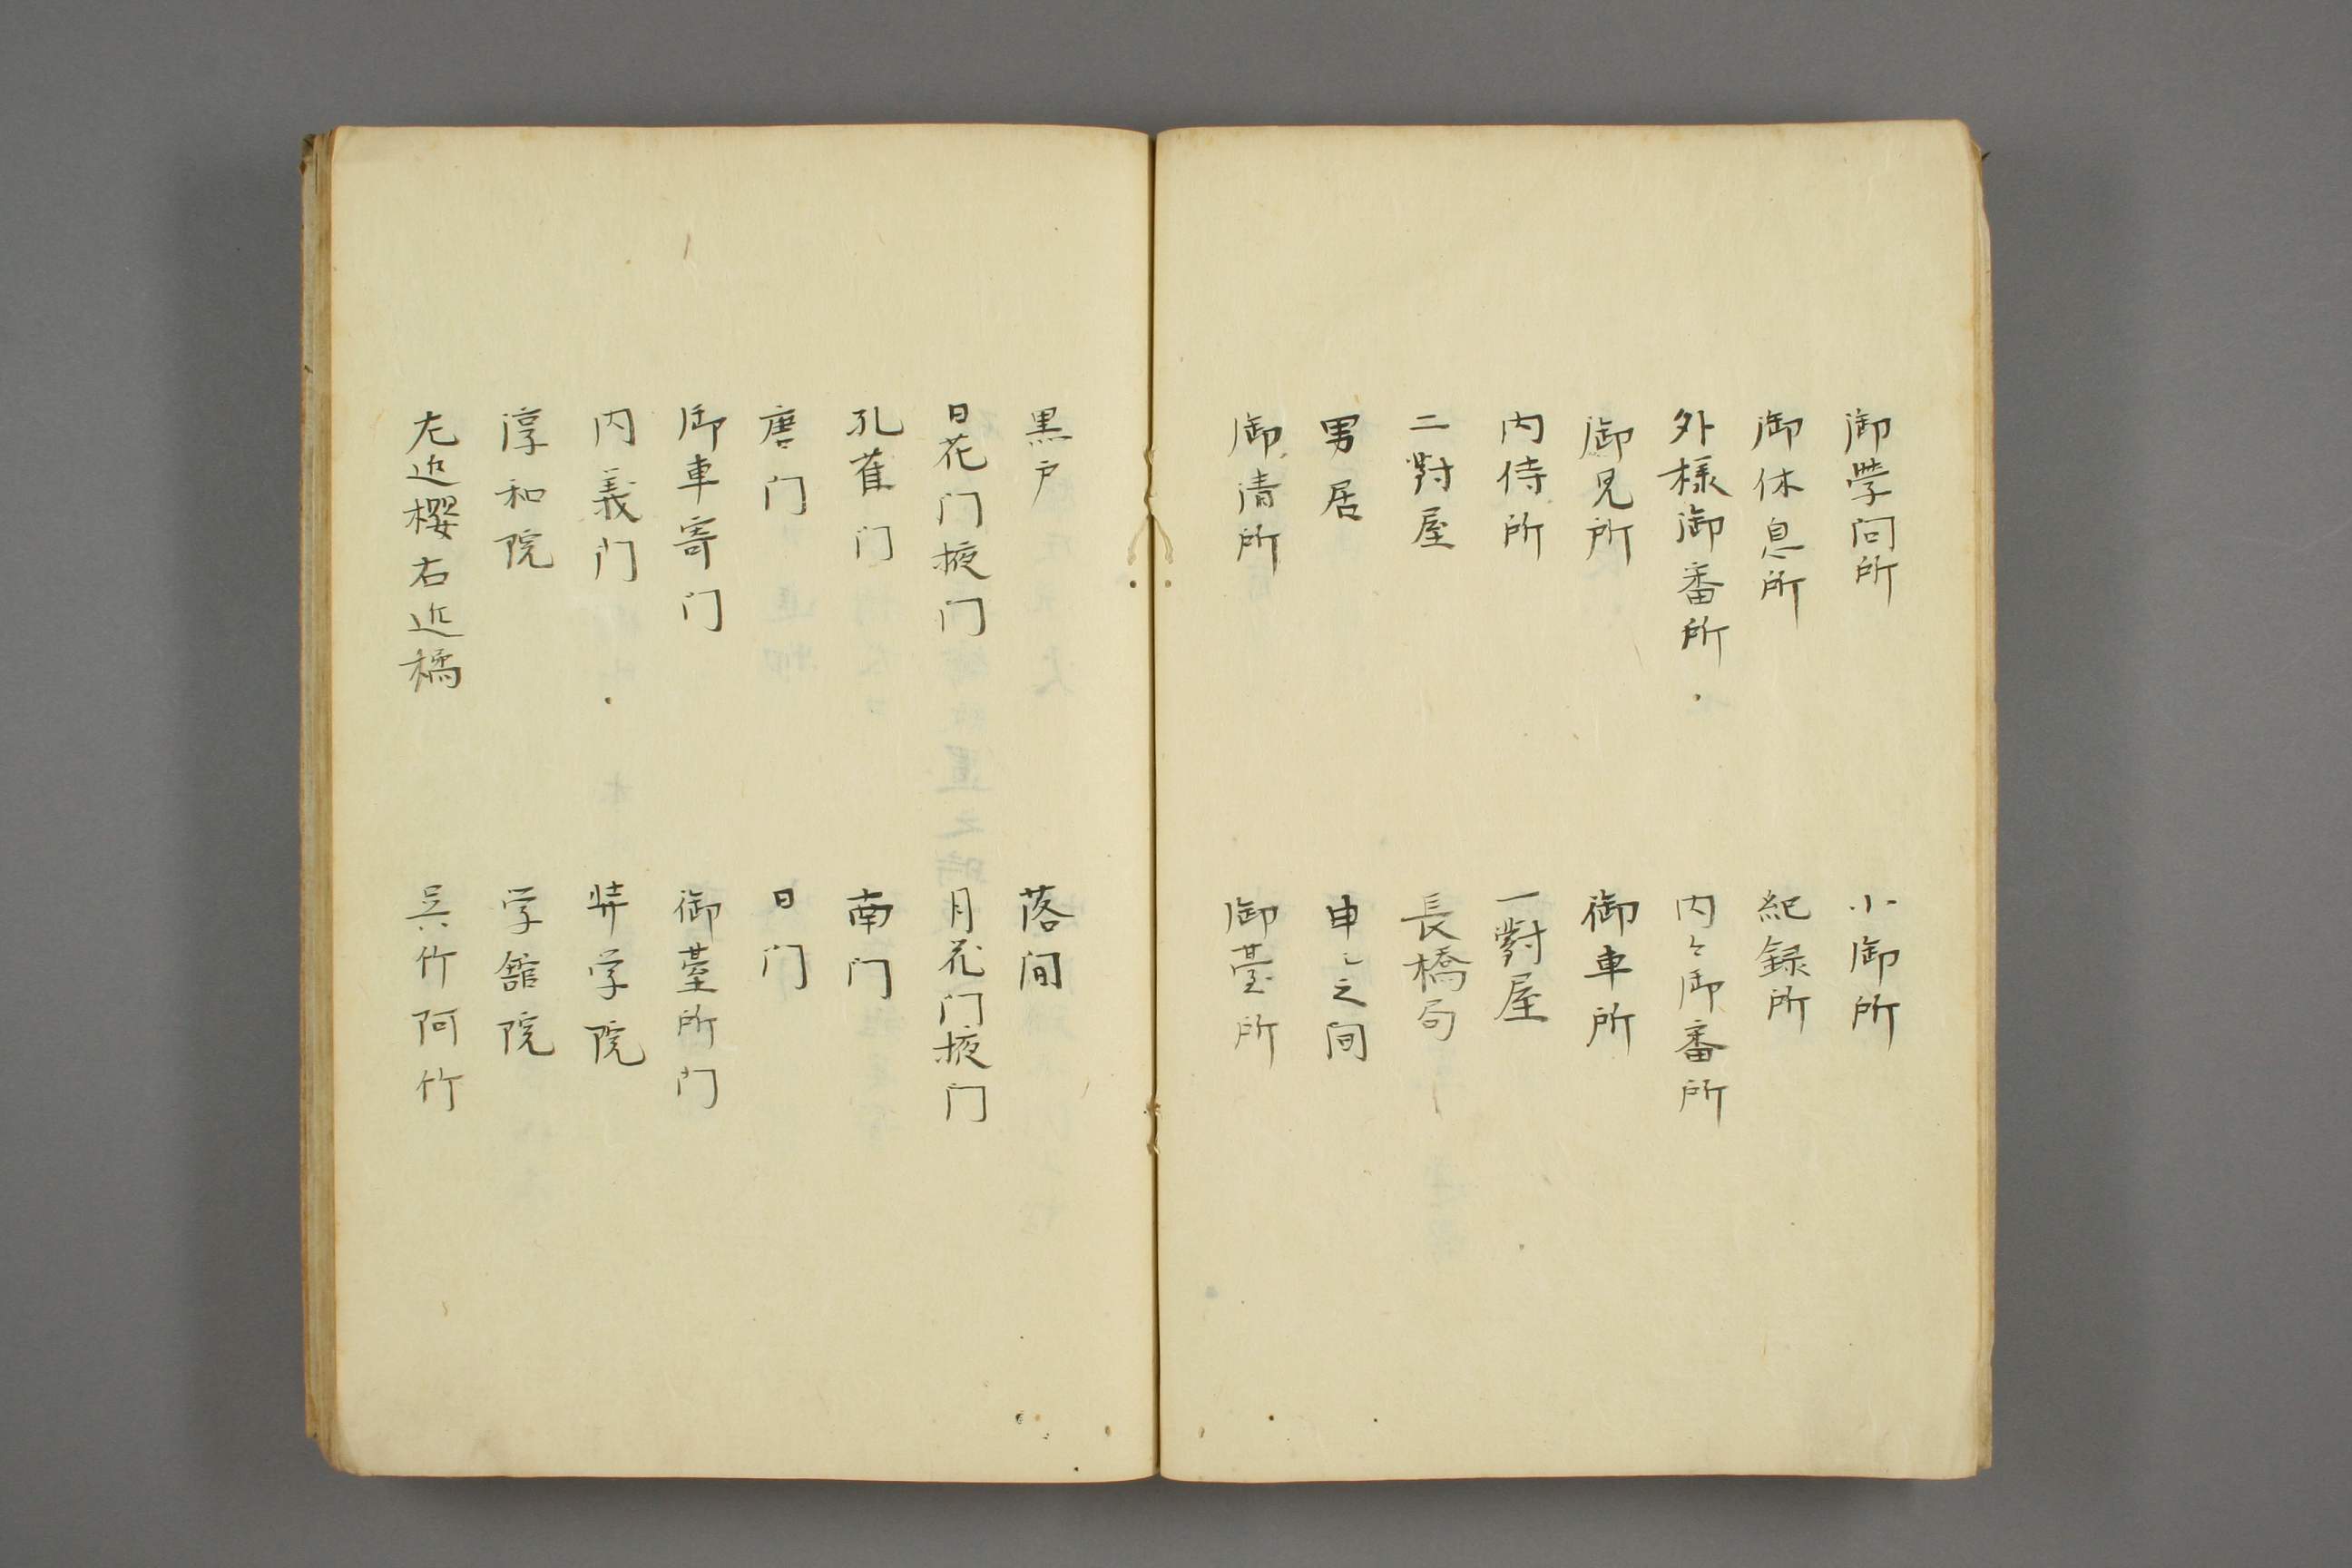 御學问所　小御所
御休息所　紀録所
外様御番所　内々御番所
御見所　御車所
内侍所　一對屋
二對屋　長橋局
男居　申々之间
御清所　御臺所
黒戸　落间
日花门掖门　月花门掖门
孔雀门　南门
唐门　日门
御車寄门　御臺所门
内義门　弉学院
淳和院　学舘院
左近櫻右近橘　呉竹阿竹